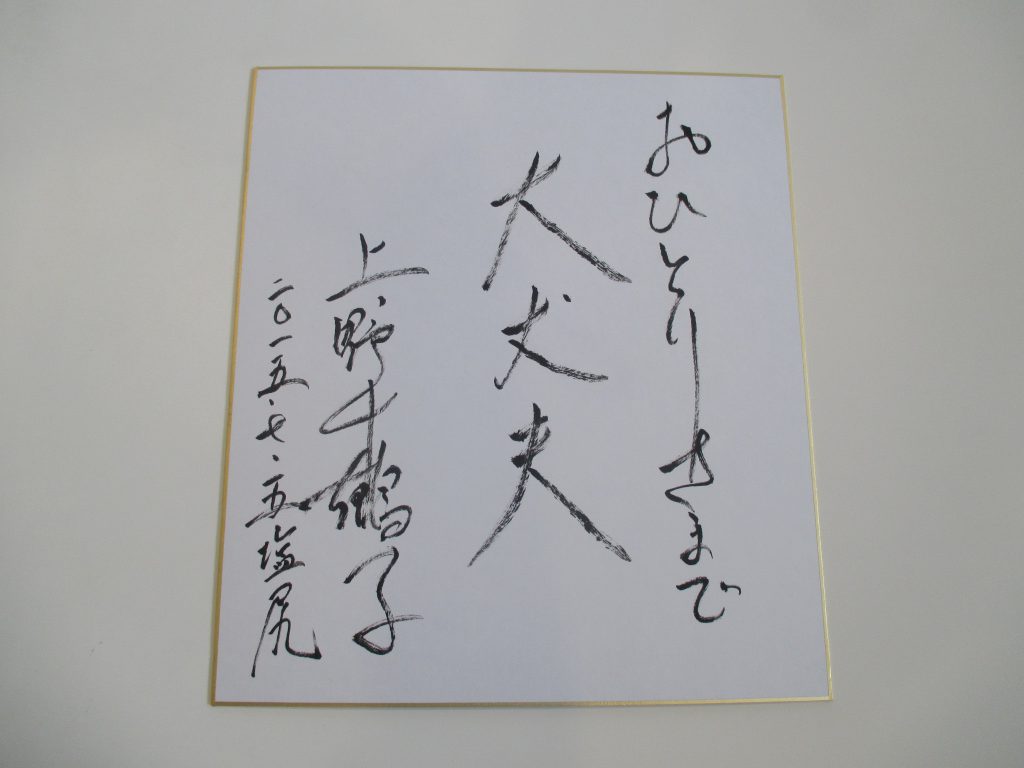 おひとりさまで
大丈夫
上野千鶴子
二〇一五・七・五塩尻